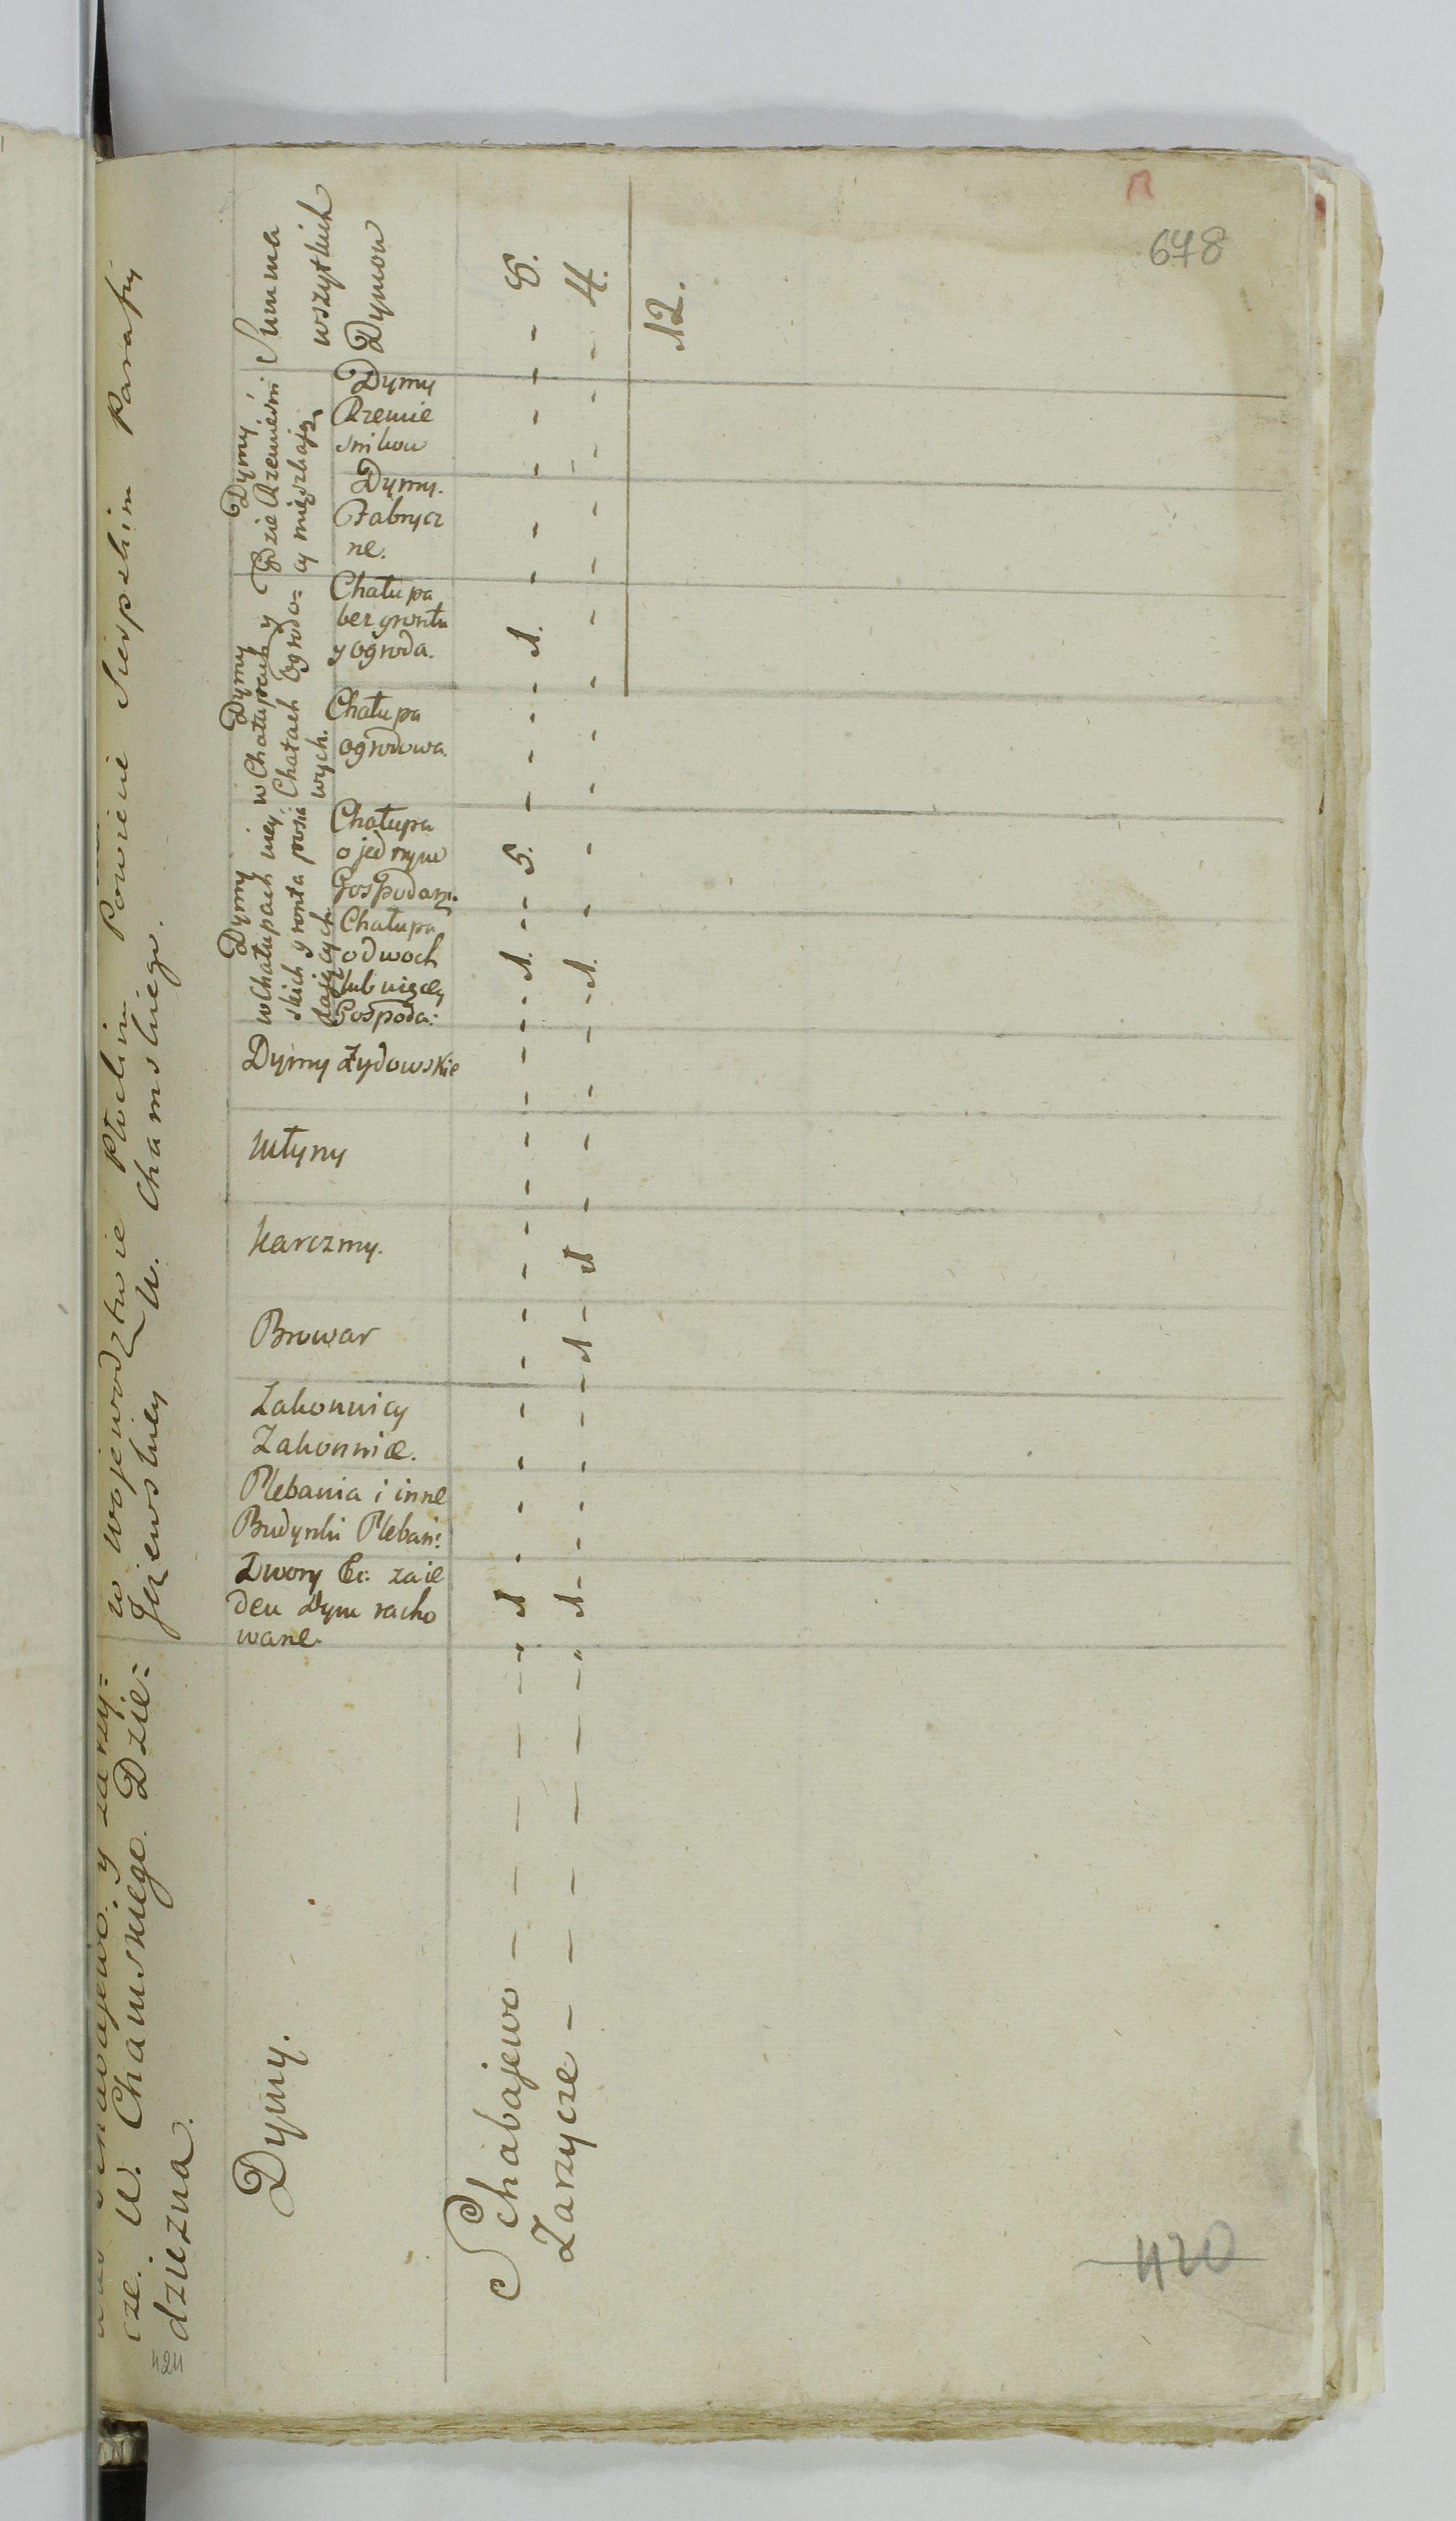 678
y Zarzy=
cze. W. Chamskiego. Dzie=
dziczna.
w Wojewodztwie Płockim Powiecie Sierpskim Parafij
Jeżewskiey W. Chamskiego.
Dymy.
Dwory &c: za ie
den Dym racho
wane.
Plebania i inne
Budynki Plebań:
Zakonnicy
Zakonnice.
Browar
Karczmy.
Młyny
Dymy Żydowskie
Dymy
w Chałupach wiey:
skich gronta posia
daiących
Chałupa
o dwoch
lub więcey
Gospoda:
Chałupa
o jednym
Gospodarz.
Dymy
w Chałupach y
Chatach Ogrodo=
wych.
Chałupa
ogrodowa.
Chałupa
bez grontu
y ogroda.
Dymy,
Gdzie Rzemieśni
cy mięszkają,
Dymy.
Fabrycz
ne.
Dymy
Rzemie
śnikow
Summa
wszytkich
Dymow
Schabajewo - - - - - 1 - - - - - - - 1. - 5. - - - 1. - - - - 8.
Zarzycze - - - - - 1 - - - 1 - 1 - - - 1. - - - - - - - - 4.
12.
420
424